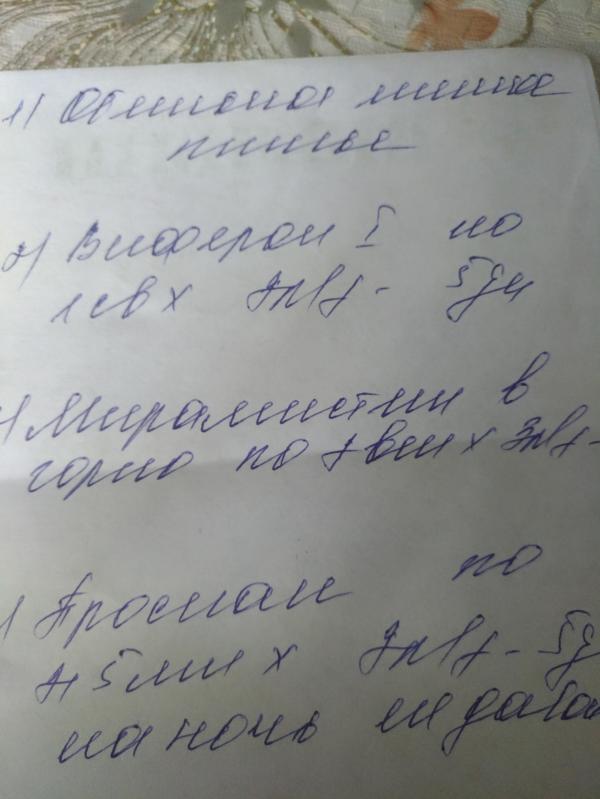 1) Обильное
питье
2) Виферон I по
1 св х 2р/д - 5дн
Мирамистин в
горло по 2 вп х 3р/д -
Проспан по
2,5мл х 2р/д - 5д
на ночь не дават